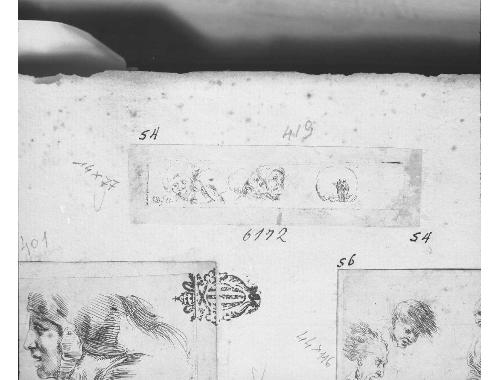 54
419
14 x 77
6172
54
401
56
44x46